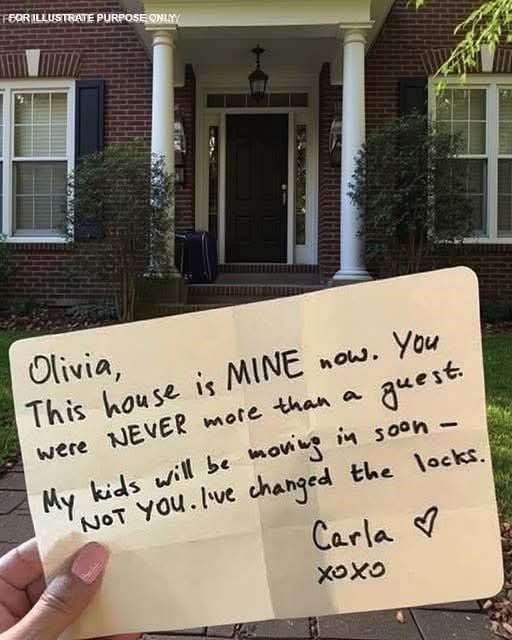 FOR ILLUSTRATE PURPOSE ONLY
Olivia,
This house is MINE now. You
were NEVER more than a guest.
My kids will be moving in soon –
NOT YOU. I've changed the locks.
Carla ♡
XOXO